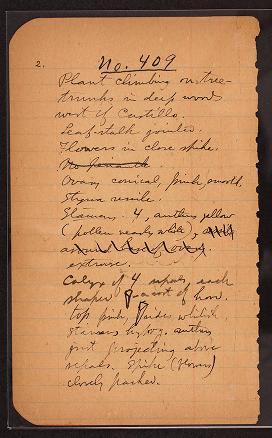 2.
No. 409
Plant climbing on tree-
trunks in deep woods
west of Castillo.
Leaf-stalk jointed.
Flowers in close spike.
Ovary conical, pink, smooth.
Stigma sessile.
Stamens 4, anthers yellow
(pollen nearly white),
extrorse.
Calyx of 4 sepals each
shaped
top pink, sides whitish
Stamens hypog. anthers
just projecting above
sepals. Spike (flowers)
closely packed.